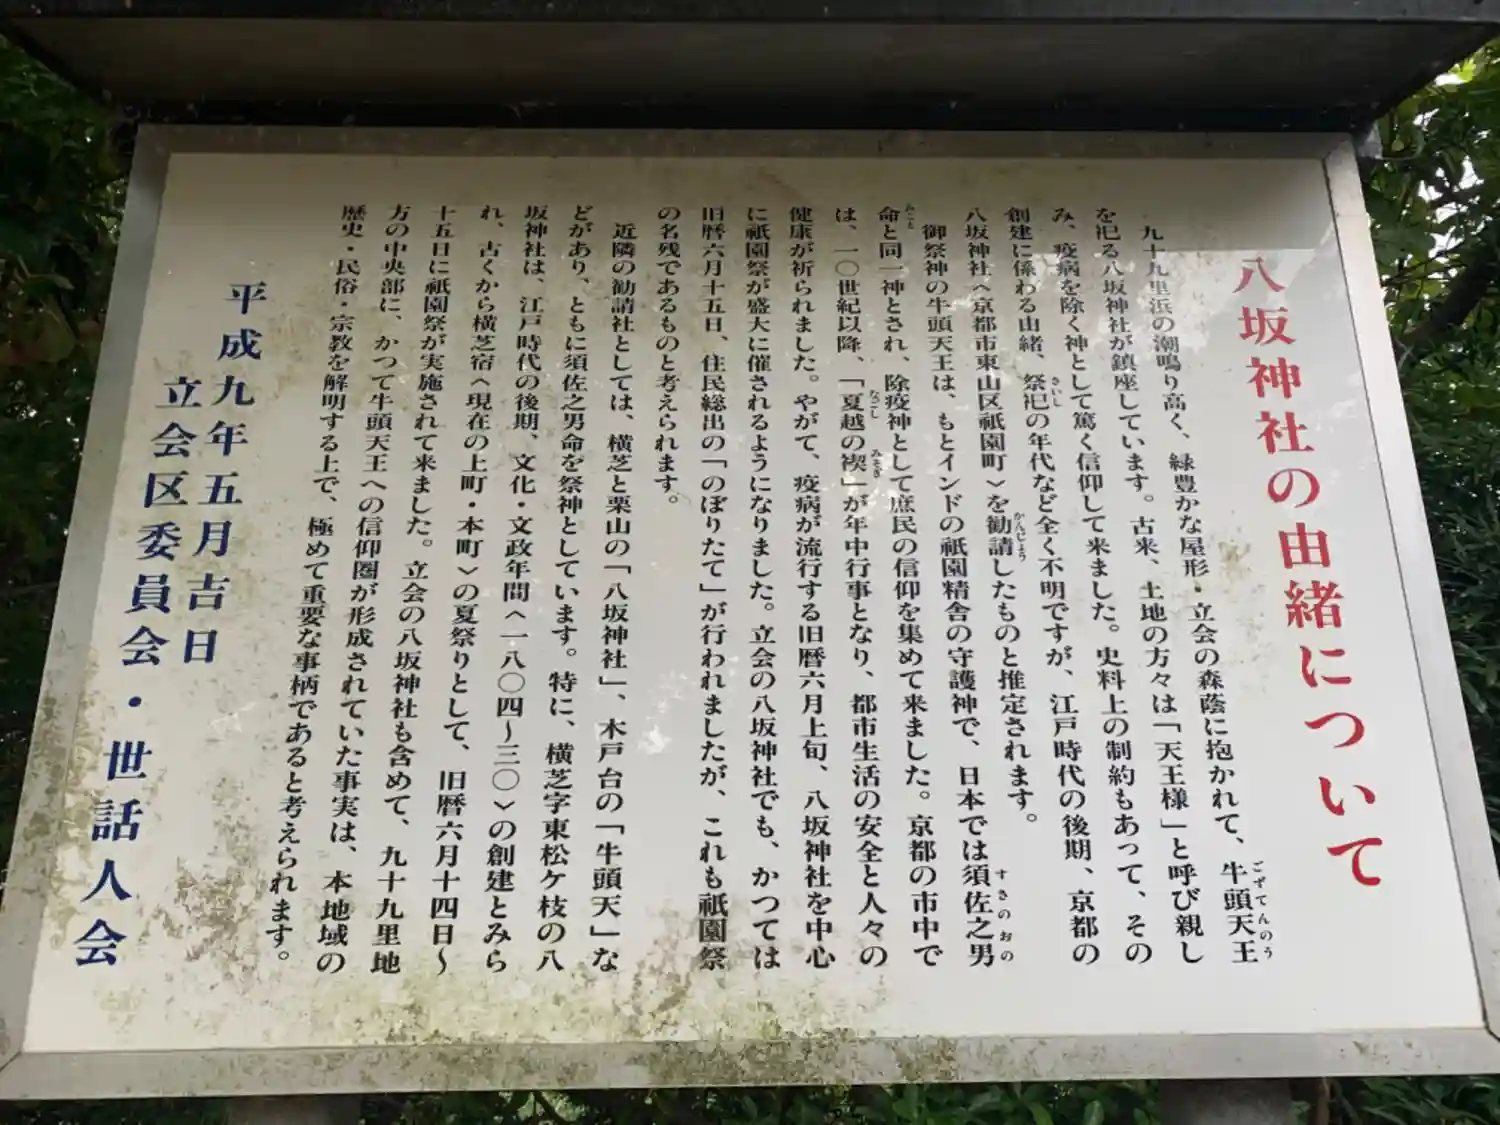 八坂神社の由緒について
九十九里浜の潮鳴り高く、緑豊かな屋形・立会の森蔭に抱かれて、牛頭天王
ごずてんのう
を祀る八坂神社が鎮座しています。古来、土地の方々は「天王様」と呼び親し
み、疫病を除く神として篤く信仰して来ました。史料上の制約もあって、その
創建に係わる由緒、祭祀の年代など全く不明ですが、江戸時代の後期、京都の
さいし
八坂神社〈京都市東山区祇園町〉を勧請したものと推定されます。
かんじょう
御祭神の牛頭天王は、もとインドの祇園精舎の守護神で、日本では須佐之男
すさのおの
命と同一神とされ、除疫神として庶民の信仰を集めて来ました。京都の市中で
みこと
は、一〇世紀以降、「夏越の禊」が年中行事となり、都市生活の安全と人々の
なごし
みそぎ
健康が祈られました。やがて、疫病が流行する旧暦六月上旬、八坂神社を中心
に祇園祭が盛大に催されるようになりました。立会の八坂神社でも、かつては
旧暦六月十五日、住民総出の「のぼりたて」が行われましたが、これも祇園祭
の名残であるものと考えられます。
近隣の勧請社としては、横芝と栗山の「八坂神社」、木戸台の「牛頭天」な
どがあり、ともに須佐之男命を祭神としています。特に、横芝字東松ケ枝の八
坂神社は、江戸時代の後期、文化・文政年間〈一八〇四〜三〇〉の創建とみら
れ、古くから横芝宿〈現在の上町・本町〉の夏祭りとして、旧暦六月十四日〜
十五日に祇園祭が実施されて来ました。立会の八坂神社も含めて、九十九里地
方の中央部に、かつて牛頭天王への信仰圏が形成されていた事実は、本地域の
歴史・民俗・宗教を解明する上で、極めて重要な事柄であると考えられます。
平成九年五月吉日
立会区委員会・世話人会